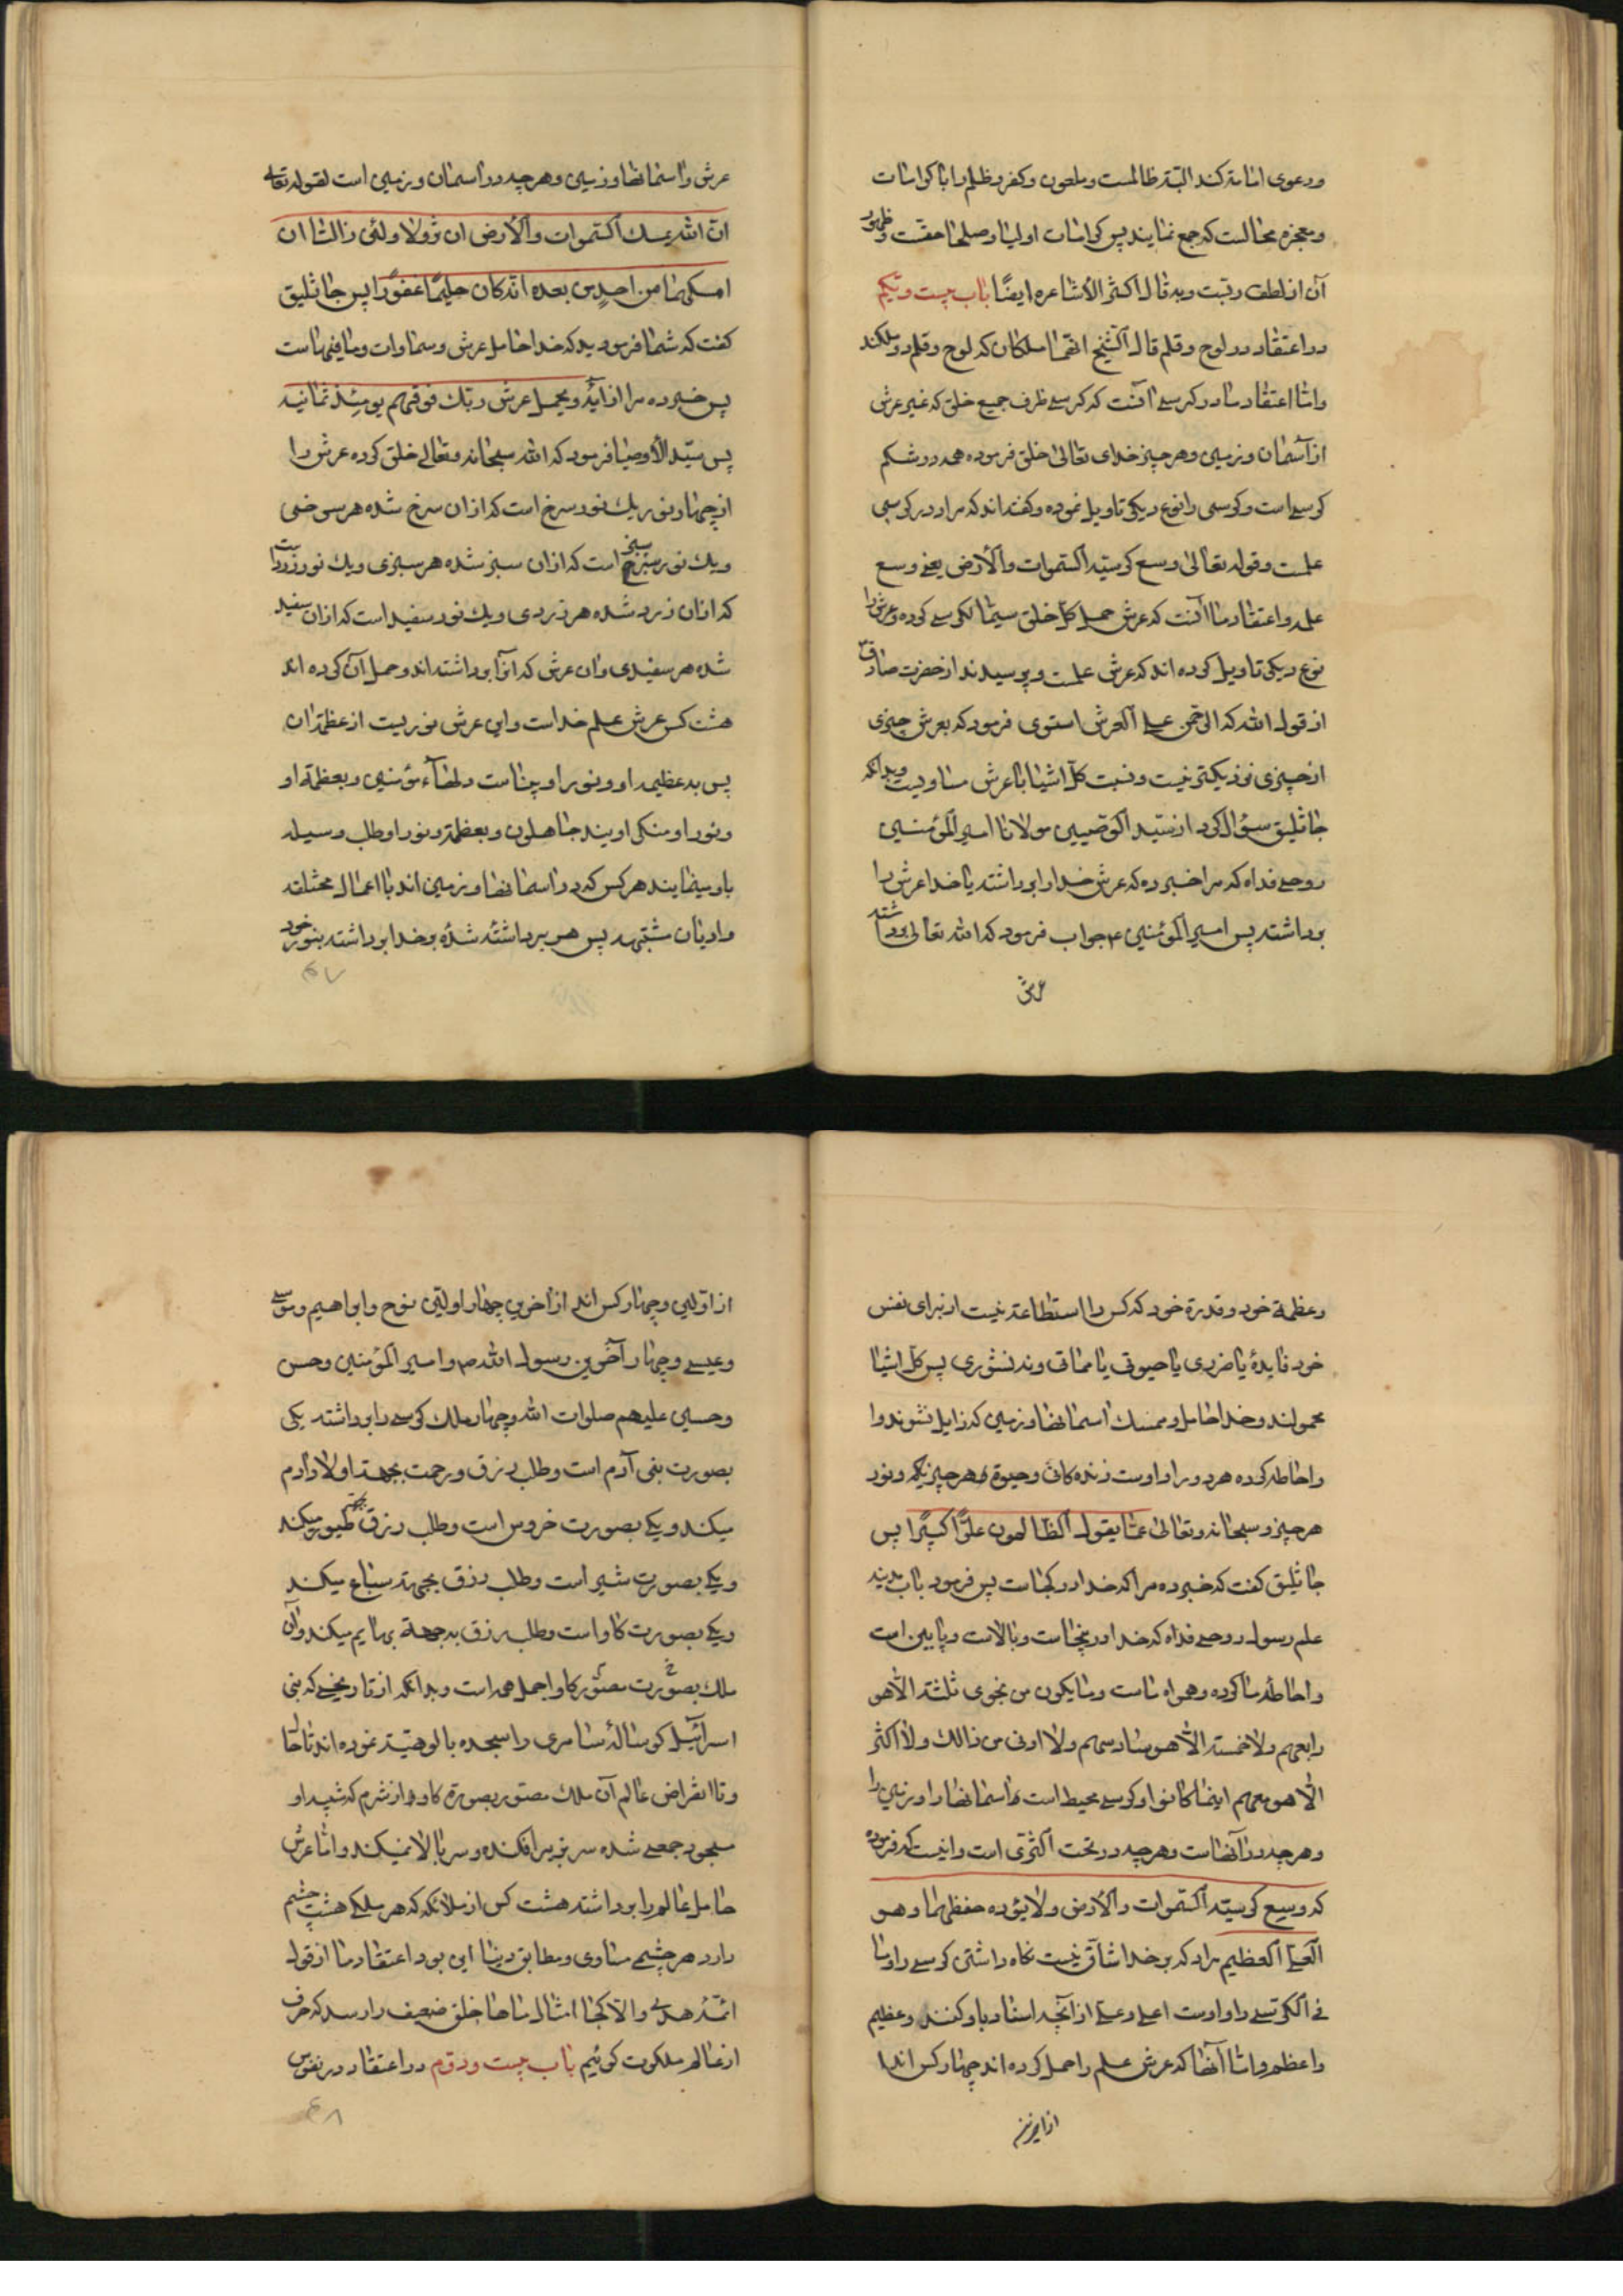 و دعوی امامة کند البتة ظالمست و ملعون و کفر و ظلم را با کرامات
و معجزه محالست که جمع نمایند پس کرامات اولیا و صلحا حقست و ظهور
آن از لطف و قال اکثر الأشاعره ایضًا باب بیست و یکم
در اعتقاد در لوح و قلم قال الشیخ انهما ملکان که لوح و قلم دو ملکند
و امّا اعتقاد ما در کرسے آنست که کرسے ظرف جمیع خلق که غیر عرش
از آسمان و زمین و هر چیز خدای تعالیٰ خلق فرموده همه در شکم
کرسے است و کرسی را نوع دیگر تاویل نموده و گفته اند که مراد در کرسی
علمست و قوله تعالیٰ وسع کرسیّه السّموات والأرض یعنے وسع
علمه و اعتقاد ما آنست که عرش حمل کلّ خلق سیّما کرسے کرده و عرش را
نوع دیگر تاویل کرده اند که عرش علمست و پرسیدند از حضرت صادق
از قول الله که الرحمن علے العرش استوی فرمود که بعرش چیزی
از چیزی نزدیکتر نیست و نسبت کلّ اشیا با عرش مساویست و بدانکه
جاثلیق سؤال کرد از سیّد الوصیین مولانا امیر المؤمنین
روحے فداه که مرا خبر ده که عرش خدا را برداشته یا خدا عرش را
برداشته پس امیر المؤمنین ع جواب فرمود که الله تعالیٰ برداشته
عرش
عرش و آسمانها و زمین و هر چه در آسمان و زمین است لقوله تعالے
انّ الله یمسك السّموات والأرض ان تزولا ولئن زالتا ان
امسکهما من احدٍ من بعده انّه کان حلیمًا غفورًا پس جاثلیق
گفت که شما فرمودید که خدا حامل عرش و سماوات و ما فیهاست
پس خبر ده مرا از آیهٔ ویحمل عرش ربّك فوقهم یومئذ ثمانیه
پس سیّد الأوصیا فرمود که الله سبحانه و تعالے خلق کرده عرش را
از چهار نور یك نور سرخ است که از ان سرخ شده هر سرخی
و یك نور سبز است که از ان سبز شده هر سبزی و یك نور زرد است
که از ان زرد شده هر زردی و یك نور سفید است که از ان سفید
شده هر سفیدی و ان عرش که انرا برداشته اند و حمل آن کرده اند
هشت کس عرش علم خداست و این عرش نوریست از عظمة ان
پس بعظیم او و نور او بیناست دلهاء مؤمنین و بعظمة او
و نور او منکر اویند جاهلون و بعظمة و نور او طلب وسیله
باو مینمایند هر کس که در آسمانها و زمین اند با اعمال مختلفه
و ادیان مشتبهه پس هر برداشته شدهٔ و خدا برداشته بنور خود
۶۷
و عظمة خود و قدرة خود که کس را استطاعة نیست از برای نفس
خود فایدهٔ یا ضرری یا حیوتی یا مماتی و نه نشوری پس کلّ اشیا
محمولند و خدا حامل و ممسك آسمانها و زمین که زایل نشوند و او
احاطه کرده هر دو را و اوست زنده کانی و حیوة هر چیز یکه و نور
هر چیز و سبحانه و تعالیٰ عمّا یقول الظالمون علوًّا کبیرًا پس
جاثلیق گفت که خبر ده مرا که خدا در کجاست پس فرمود باب مدینه
علم رسول روحے فداه که خدا در اینجاست و بالاست و پایین است
و احاطه ما کرده و همراه ماست و ما یکون من نجوی ثلثة الّا هو
رابعهم ولا خمسة الّا هو سادسهم ولا ادنی من ذالك ولا اکثر
الّا هو معهم اینما کانوا و کرسے محیط است باسمانها و زمین را
و هر چه در آنهاست و هر چه در تحت الثّری است و اینست که فرموده
که وسع کرسیّه السّموات والأرض ولا یؤده حفظهما و هو
العلے العظیم مراد که بر خدا شاقّ نیست نگاه داشتن کرسے را و ما
فے الکرسے را و اوست اعلے و علے از آنچه اسناد باو کنند و عظیم
و اعظم و امّا آنها که عرش علم را حمل کرده اند چهار کس اند
از اولین
از اوّلین و چهار کس اند از آخرین چهار اوّلین نوح و ابراهیم و موسے
و عیسے و چهار آخرین رسول الله ص و امیر المؤمنین و حسن
و حسین علیهم صلوات الله و چهار ملك کرسے را برداشته یکی
بصورت بنی آدم است و طلب رزق و رحمت بجهة اولاد آدم
میکند و یکے بصورت خروس است و طلب رزق بجهة طیور میکند
و یکے بصورت شیر است و طلب رزق بجهة سباع میکند
و یکے بصورت گاو است و طلب رزق بجهة بهایم میکند و آن
ملك بصورت مصوّر گاو اجمل همه است و بدانکه از تاریخے که بنی
اسرائیل گوسالهٔ سامری را سجده بالوهیّت نموده اند تا حال
و تا انقراض عالم آن ملك مصوّر بصورة گاو از شرم که شبیه او
مسجود جمعے شده سر بزیر افکنده و سر بالا نمیکند و امّا عرش
حامل عالم را برداشته هشت کس از ملائکه که هر ملکے هشت چشم
دارد هر چشمے مساوی و مطابق دنیا این بود اعتقاد ما از قول
ائمّهٔ هدیٰ و الّا کجا امثال ماها خلق ضعیف را رسد که حرف
از عالم ملکوت گوئیم باب بیست و دوّم در اعتقاد در نفوس
۶۸